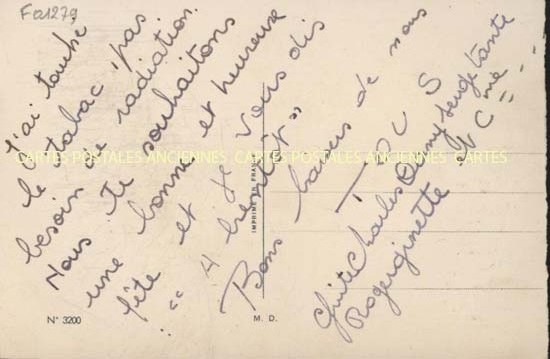 F021279
J'ai touché
le tabac, pas
besoin de radiation.
Nous te souhaitons
une bonne et heureuse
fête et je vous dis
"A bientôt"
Bons baisers de nous
TOUS
Ginette Charles Dany
Roger ginette
CARTES POSTALES ANCIENNES CARTES POSTALES ANCIENNES CARTES
IMPRIMÉ EN FRANCE
N° 3200
M. D.